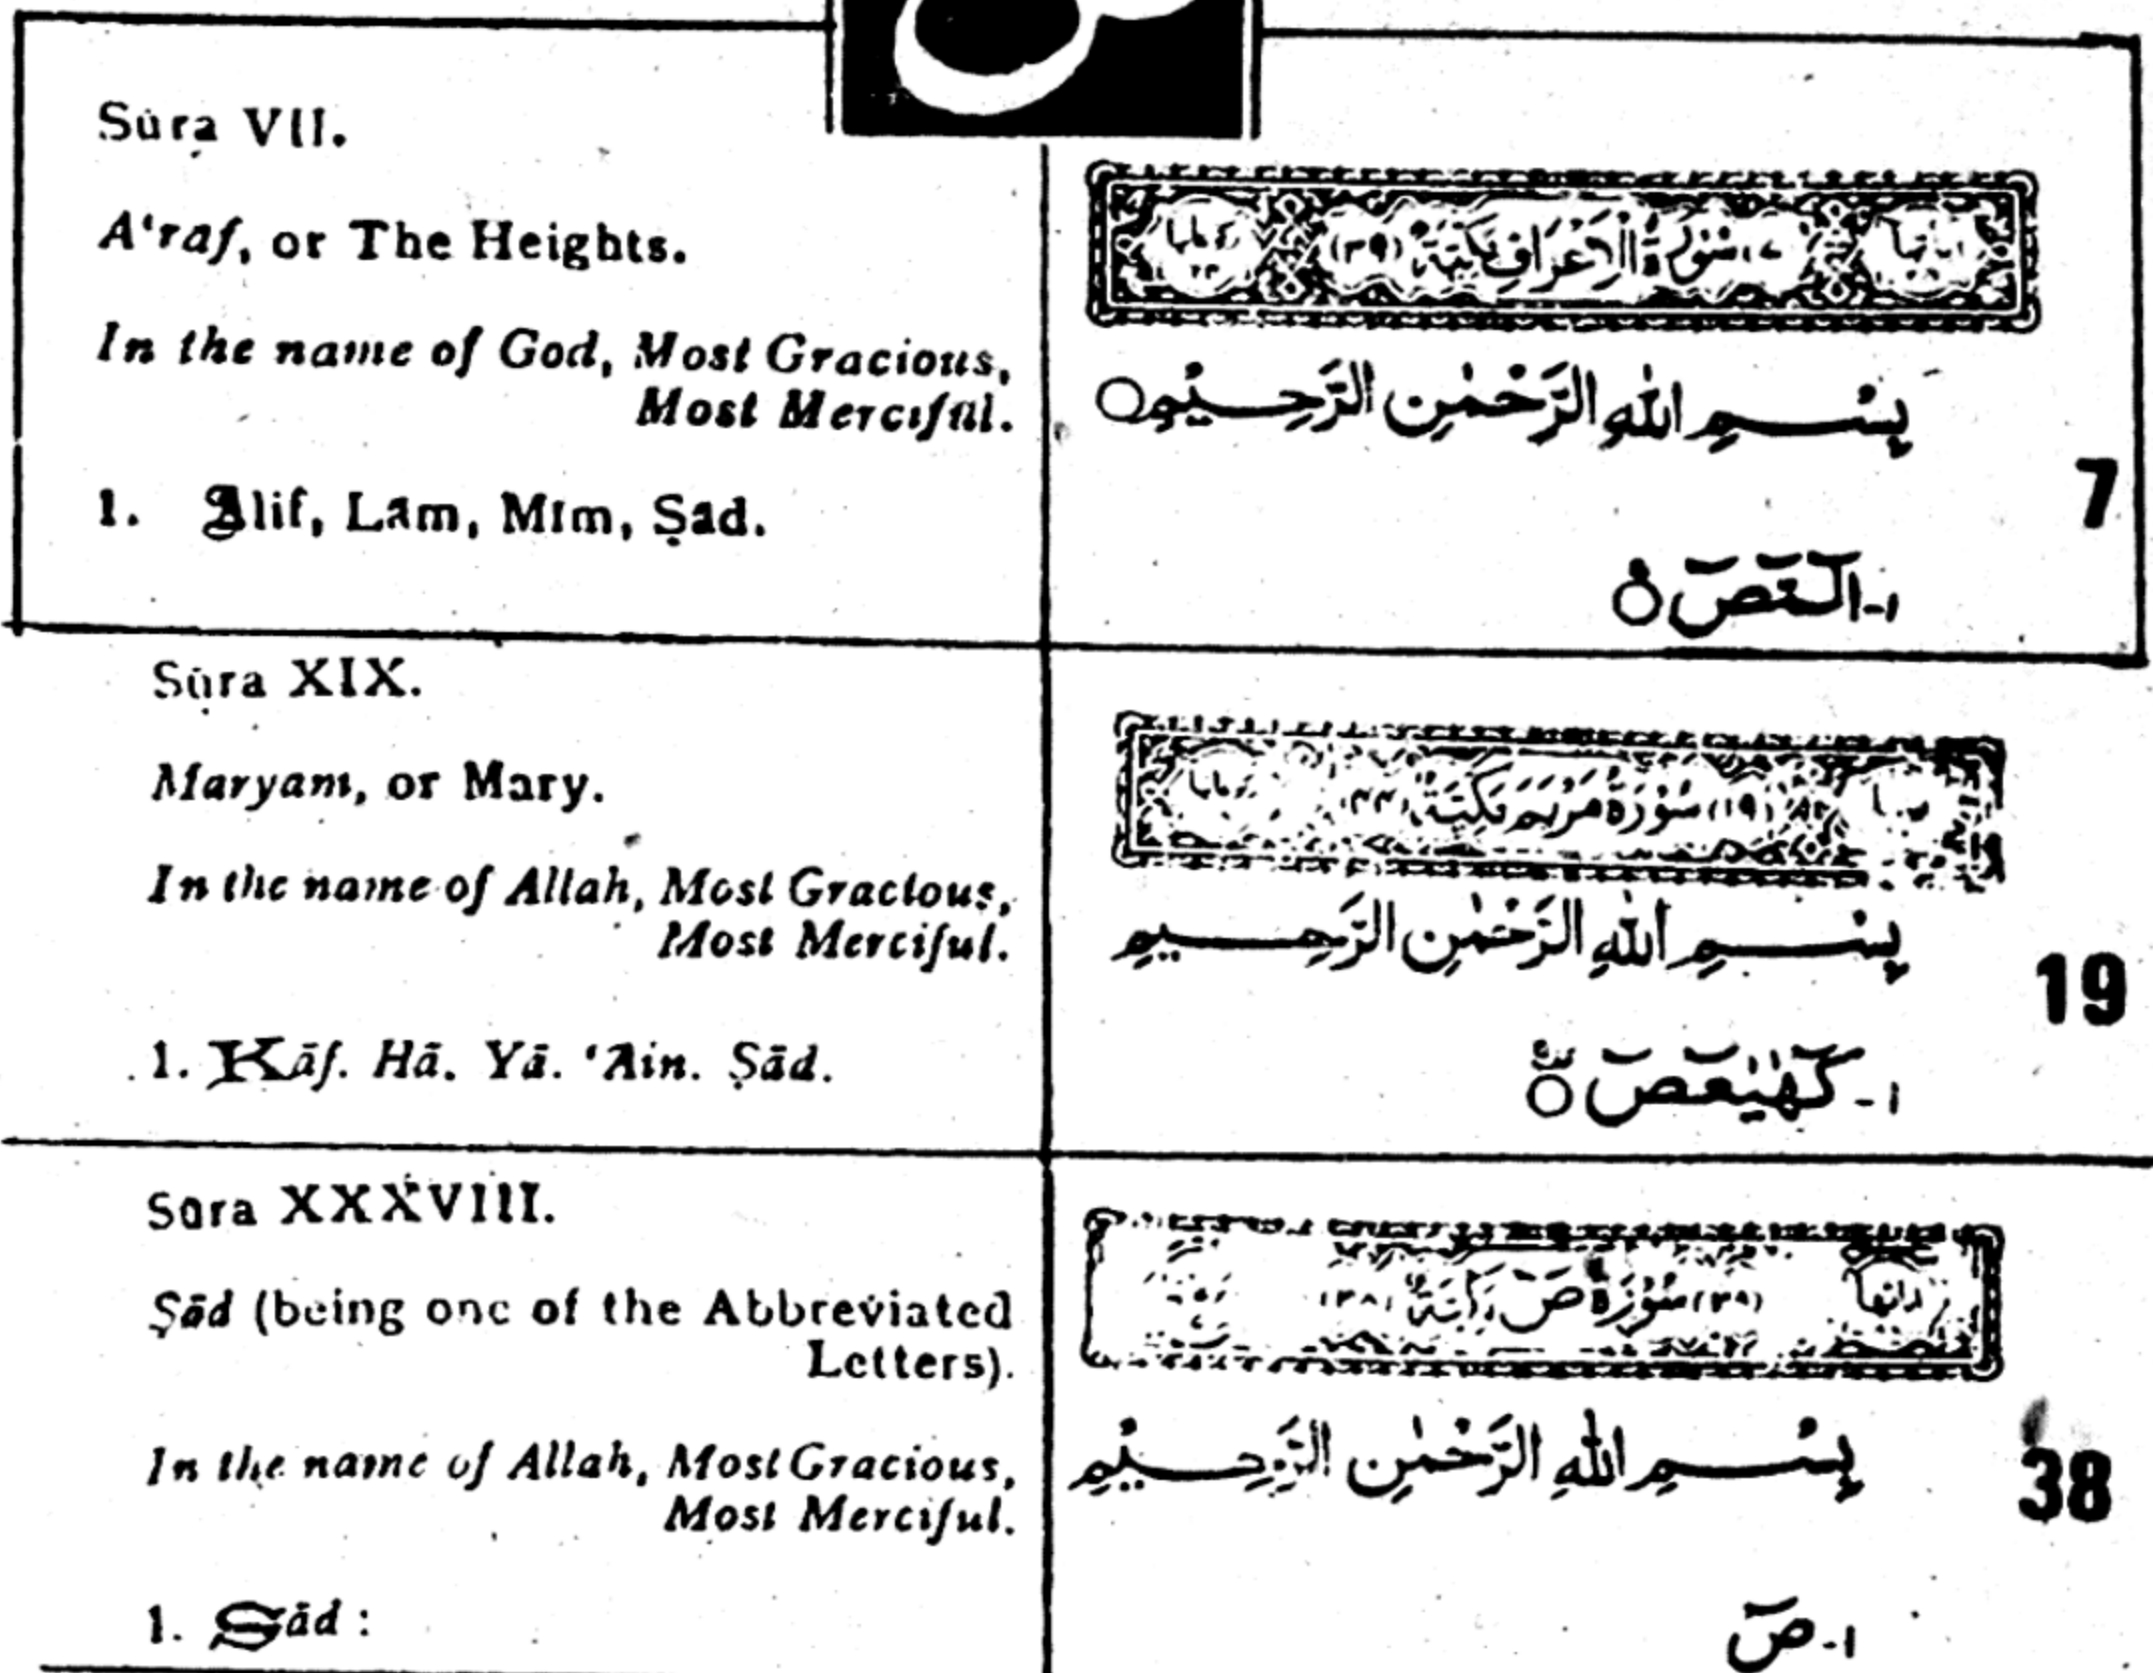 Sūra VII.
A‘raf, or The Heights.
In the name of God, Most Gracious,
Most Merciful.
1. Alif, Lām, Mīm, Ṣād.
سُوْرَةُ الْاَعْرَافِ مَكِّيَّةٌ (٣٩)
بِسْمِ اللّٰهِ الرَّحْمٰنِ الرَّحِيْمِ
7
١- الٓمّٓصٓ
Sūra XIX.
Maryam, or Mary.
In the name of Allah, Most Gracious,
Most Merciful.
1. Kāf. Hā. Yā. ‘Ain. Ṣād.
(١٩) سُوْرَةُ مَرْيَمَ مَكِّيَّةٌ (٤٤)
بِسْمِ اللّٰهِ الرَّحْمٰنِ الرَّحِيْمِ
19
١- كٓهٰيٰعٓصٓ
Sūra XXXVIII.
Ṣād (being one of the Abbreviated
Letters).
In the name of Allah, Most Gracious,
Most Merciful.
1. Ṣād :
(٣٨) سُوْرَةُ صٓ مَكِّيَّةٌ (٣٨)
بِسْمِ اللّٰهِ الرَّحْمٰنِ الرَّحِيْمِ
38
١- صٓ